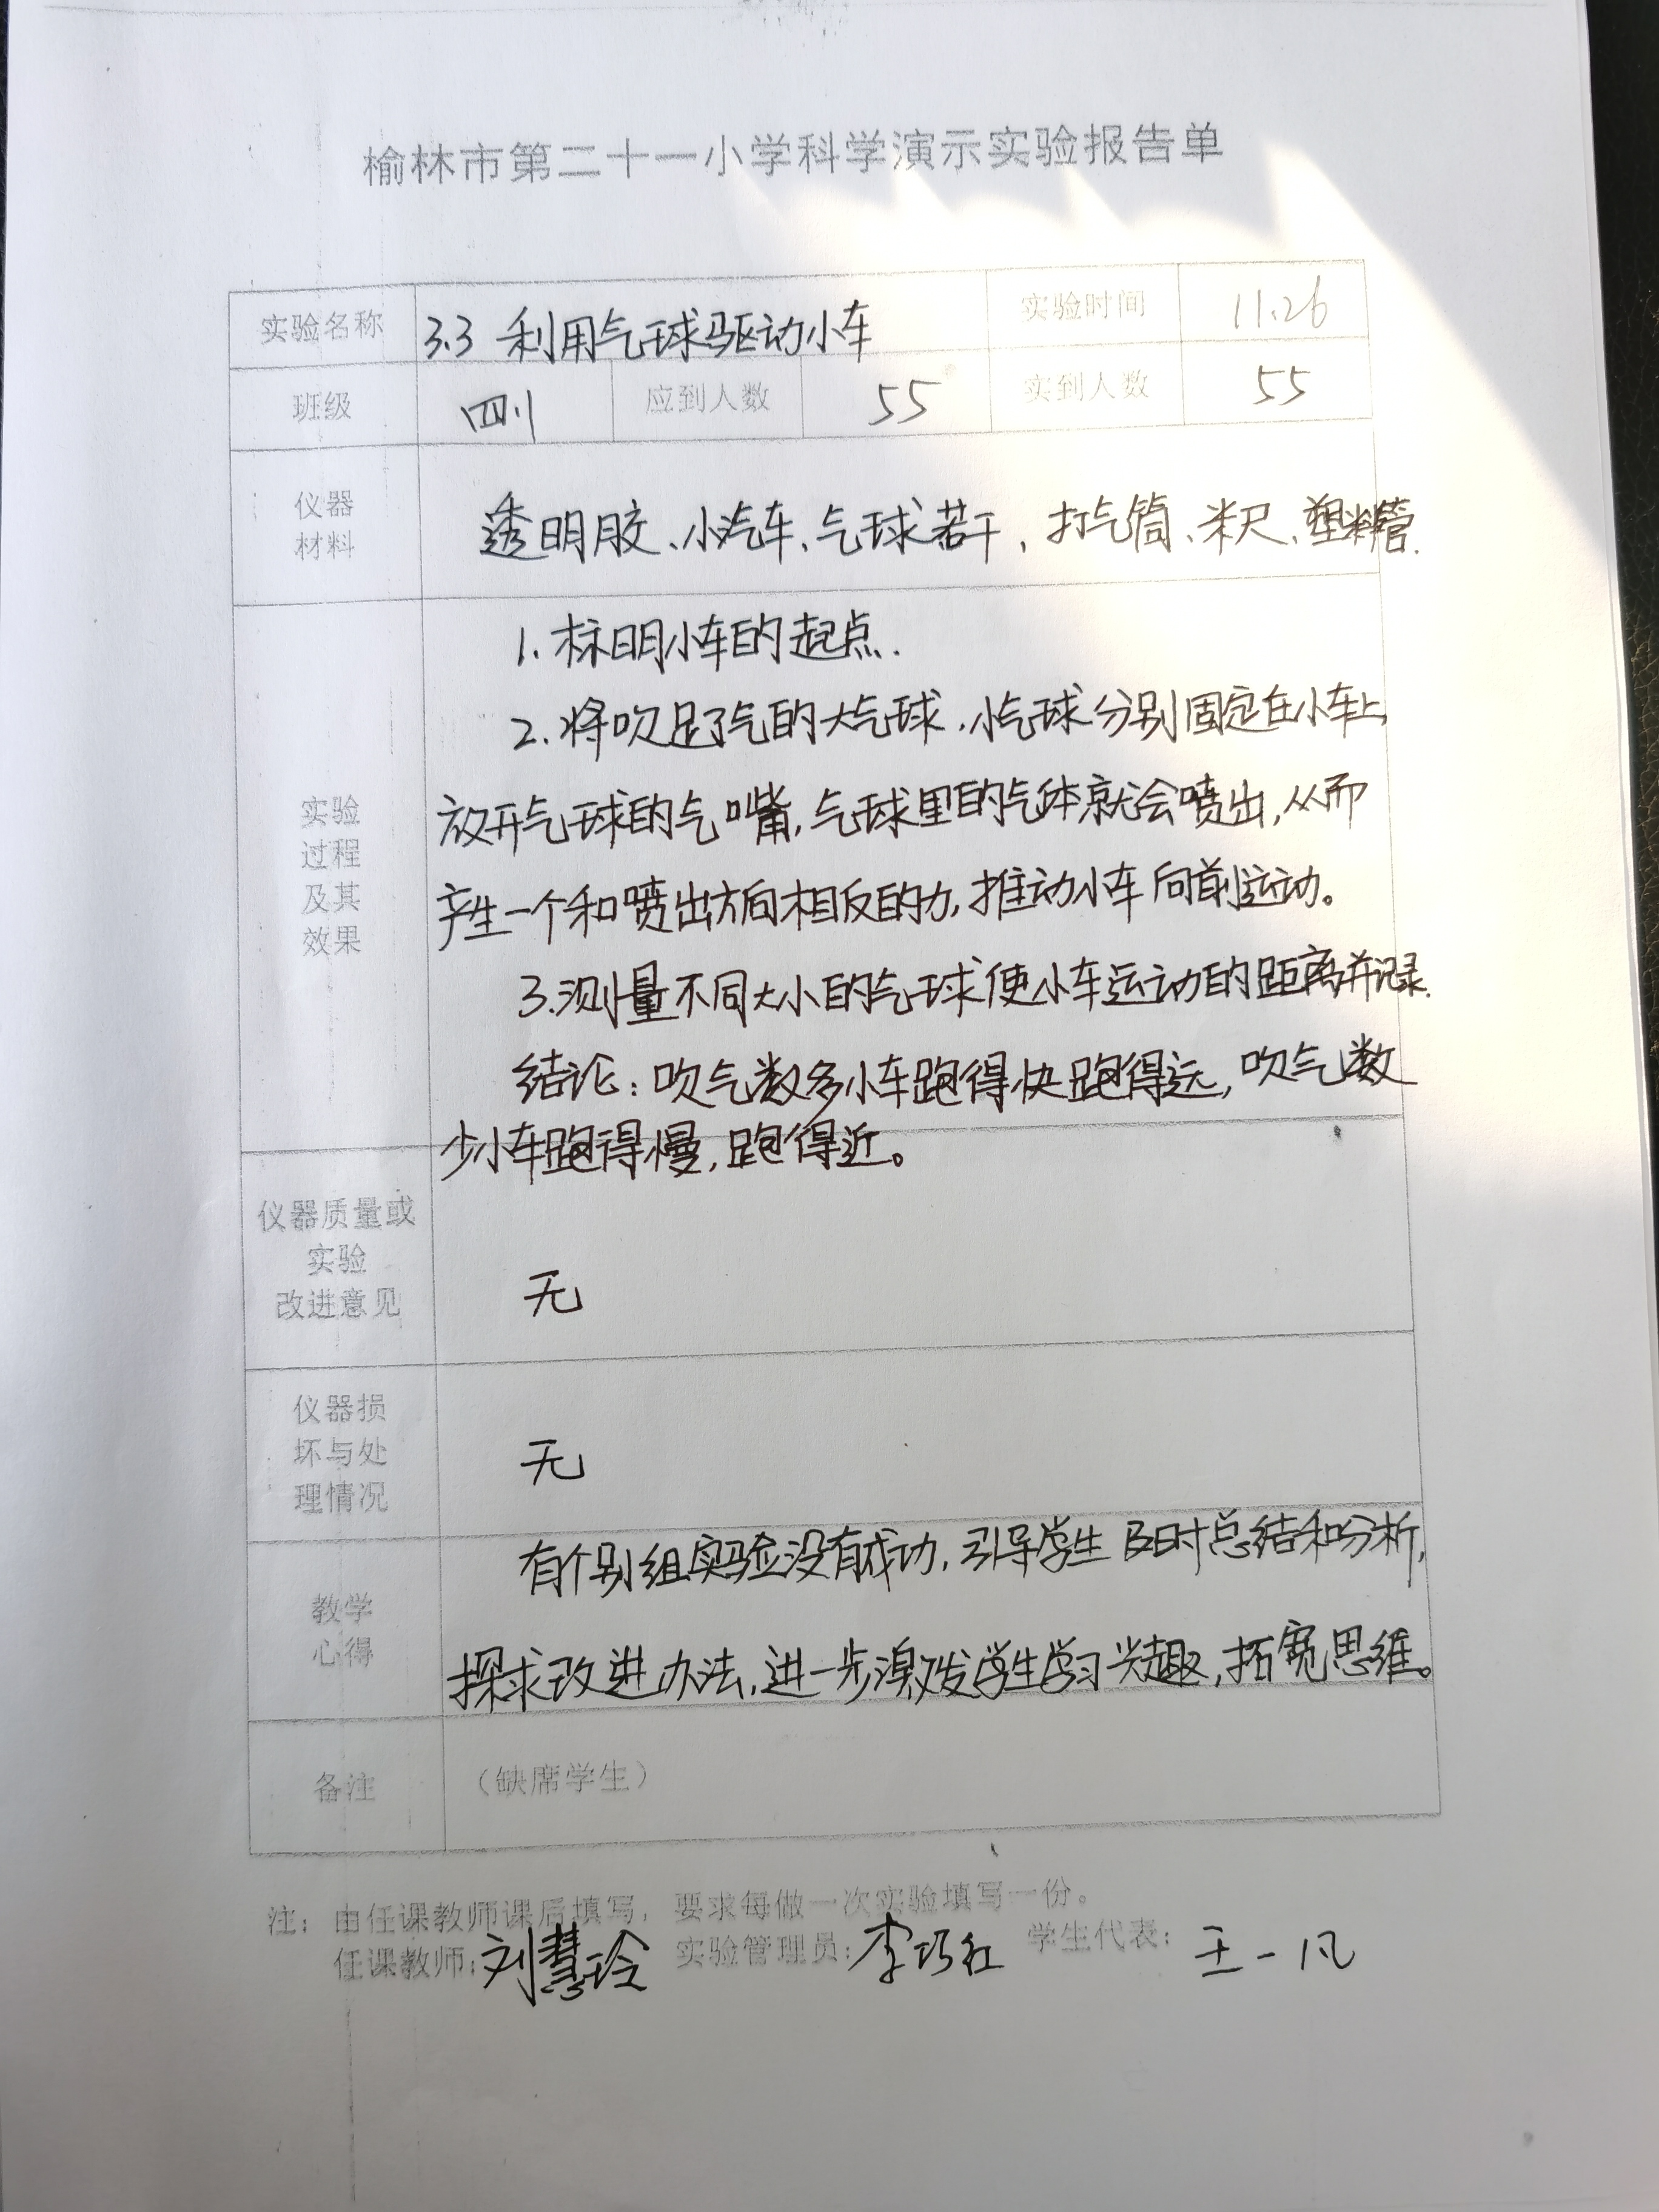 榆林市第二十一小学科学演示实验报告单
实验名称 3.3 利用气球驱动小车 实验时间 11.26
班级 四 应到人数 55 实到人数 55
仪器
材料
透明胶、小汽车、气球若干、打气筒、米尺、塑料管.
实验
过程
及其
效果
1. 标明小车的起点.
2. 将吹足了气的大气球、小气球分别固定在小车上,
放开气球的气嘴,气球里的气体就会喷出,从而
产生一个和喷出方向相反的力,推动小车向前运动。
3.测量不同大小的气球使小车运动的距离并记录.
结论:吹气数多小车跑得快跑得远,吹气数
少小车跑得慢,跑得近。
仪器质量或
实验
改进意见
无
仪器损
坏与处
理情况
无
教学
心得
有个别组实验没有成功,引导学生及时总结和分析,
探求改进办法,进一步激发学生学习兴趣,拓宽思维。
备注 (缺席学生)
注:由任课教师课后填写,要求每做一次实验填写一份。
任课教师:刘慧玲 实验管理员:李巧红 学生代表:王一凡